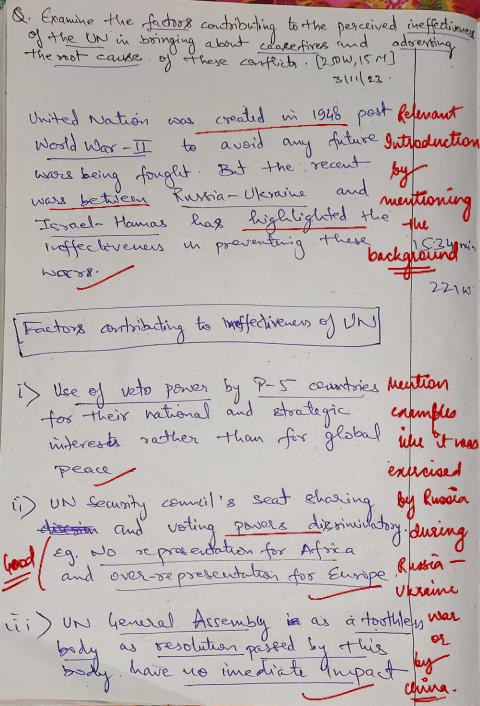 Q. Examine the factors contributing to the perceived ineffectiveness
of the UN in bringing about ceasefires and adressing
the root cause of these conflicts. [200W, 15M]
3/11/23.
United Nation was created in 1948 post
World War-II to avoid any future
wars being fought. But the recent
wars between Russia-Ukraine and
Israel-Hamas has highlighted the
ineffectiveness in preventing these
wars.
Relevant
Introduction
by
mentioning
the
background
15:34 min
221w
Factors contributing to ineffectiveness of UN
i) Use of veto power by P-5 countries
for their national and strategic
interests rather than for global
peace
ii) UN Security council's seat sharing
and voting powers discriminatory.
eg. No representation for Africa
and over-representation for Europe.
Good
iii) UN General Assembly is as a toothless
body as resolution passed by this
body have no imediate impact
Mention
examples
like it was
exercised
by Russia
during
Russia-
Ukraine
war
or
by
China.